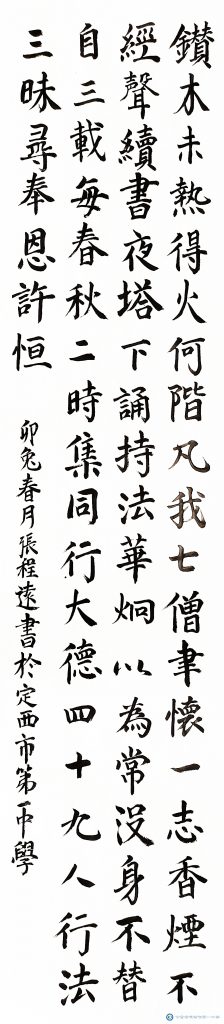 鑚木未熱得火何階凡我七僧聿懷一志香煙不
經聲續書夜塔下誦持法華炯以為常没身不替
自三載每春秋二時集同行大德四十九人行法
三昧尋奉恩許恒
卯兔春月張程遠書於定西市第一中學